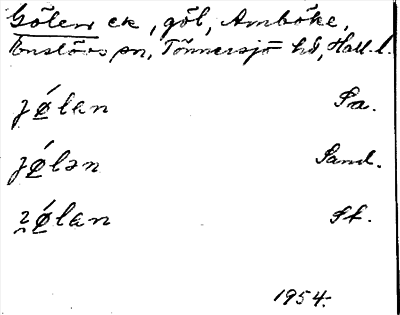 Gölen ek, göl, Amböke,
Enslövs sn, Tönnersjö hd, Hall. l.
jǿlan Sa.
jǿlən Sand.
ʒǿlan St.
1954.